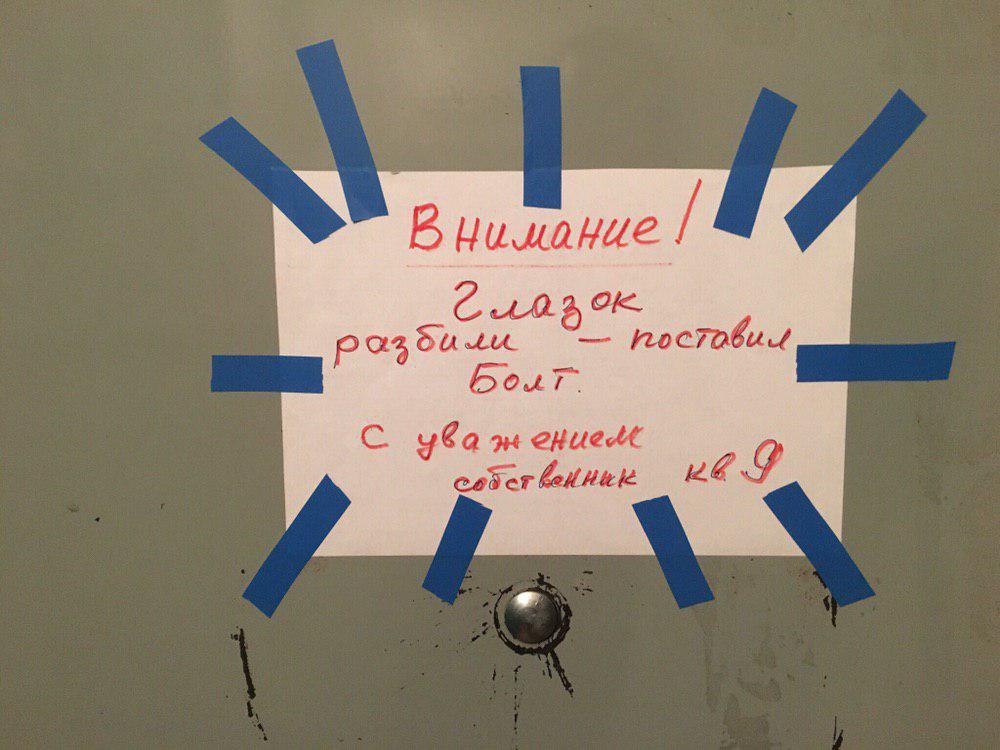 Внимание!
Глазок
разбили — поставил
Болт.
С уважением
собственник кв 9